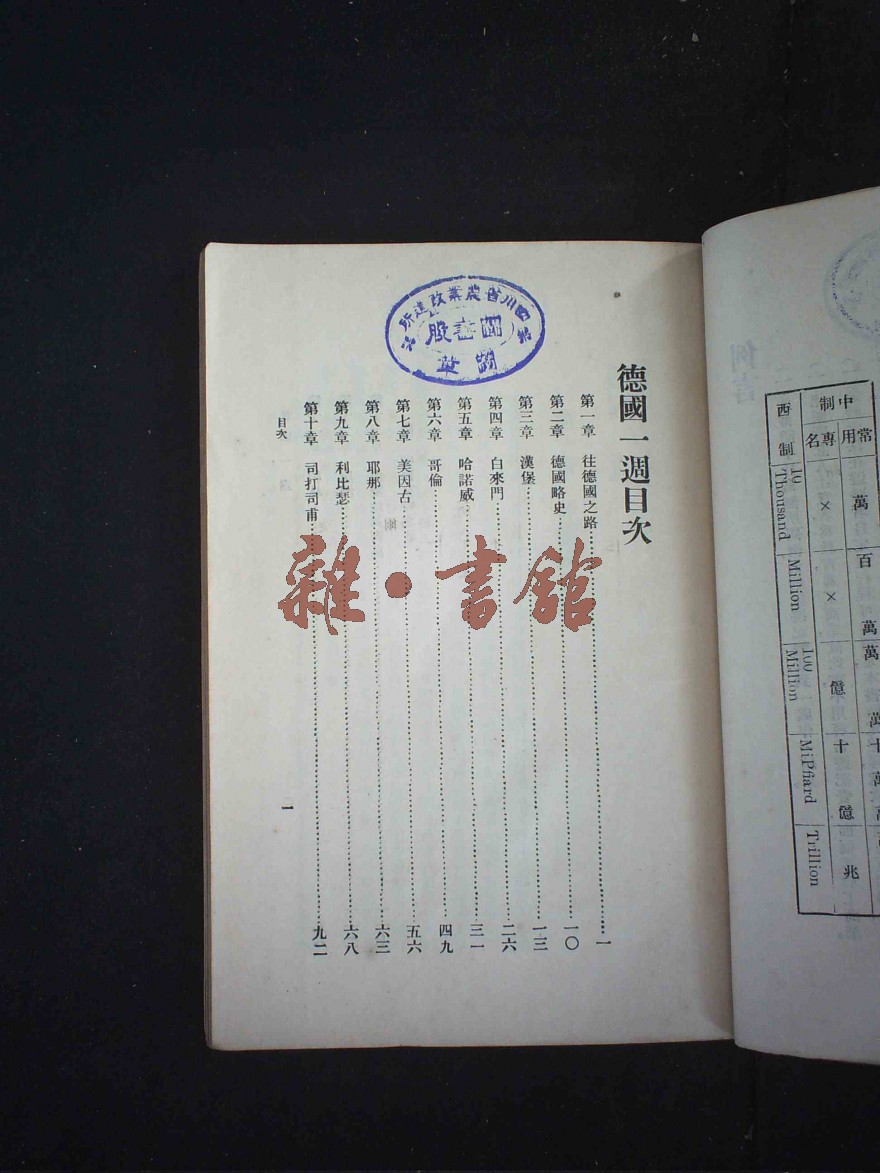 德國一週目次
第一章 往德國之路…………一
第二章 德國略史…………一〇
第三章 漢堡…………一三
第四章 白來門…………二六
第五章 哈諾威…………三一
第六章 哥倫…………四九
第七章 美因古…………五六
第八章 耶那…………六三
第九章 利比瑟…………六八
第十章 司打司甫…………九二
目次
一
四川省農業改進所
圖書股
圖章
雜·書館
例言
常用 萬 百萬
中制
專名 × × 億 十億 兆
西制 10 Thousand Million 100 Million MiPfiard Trillion